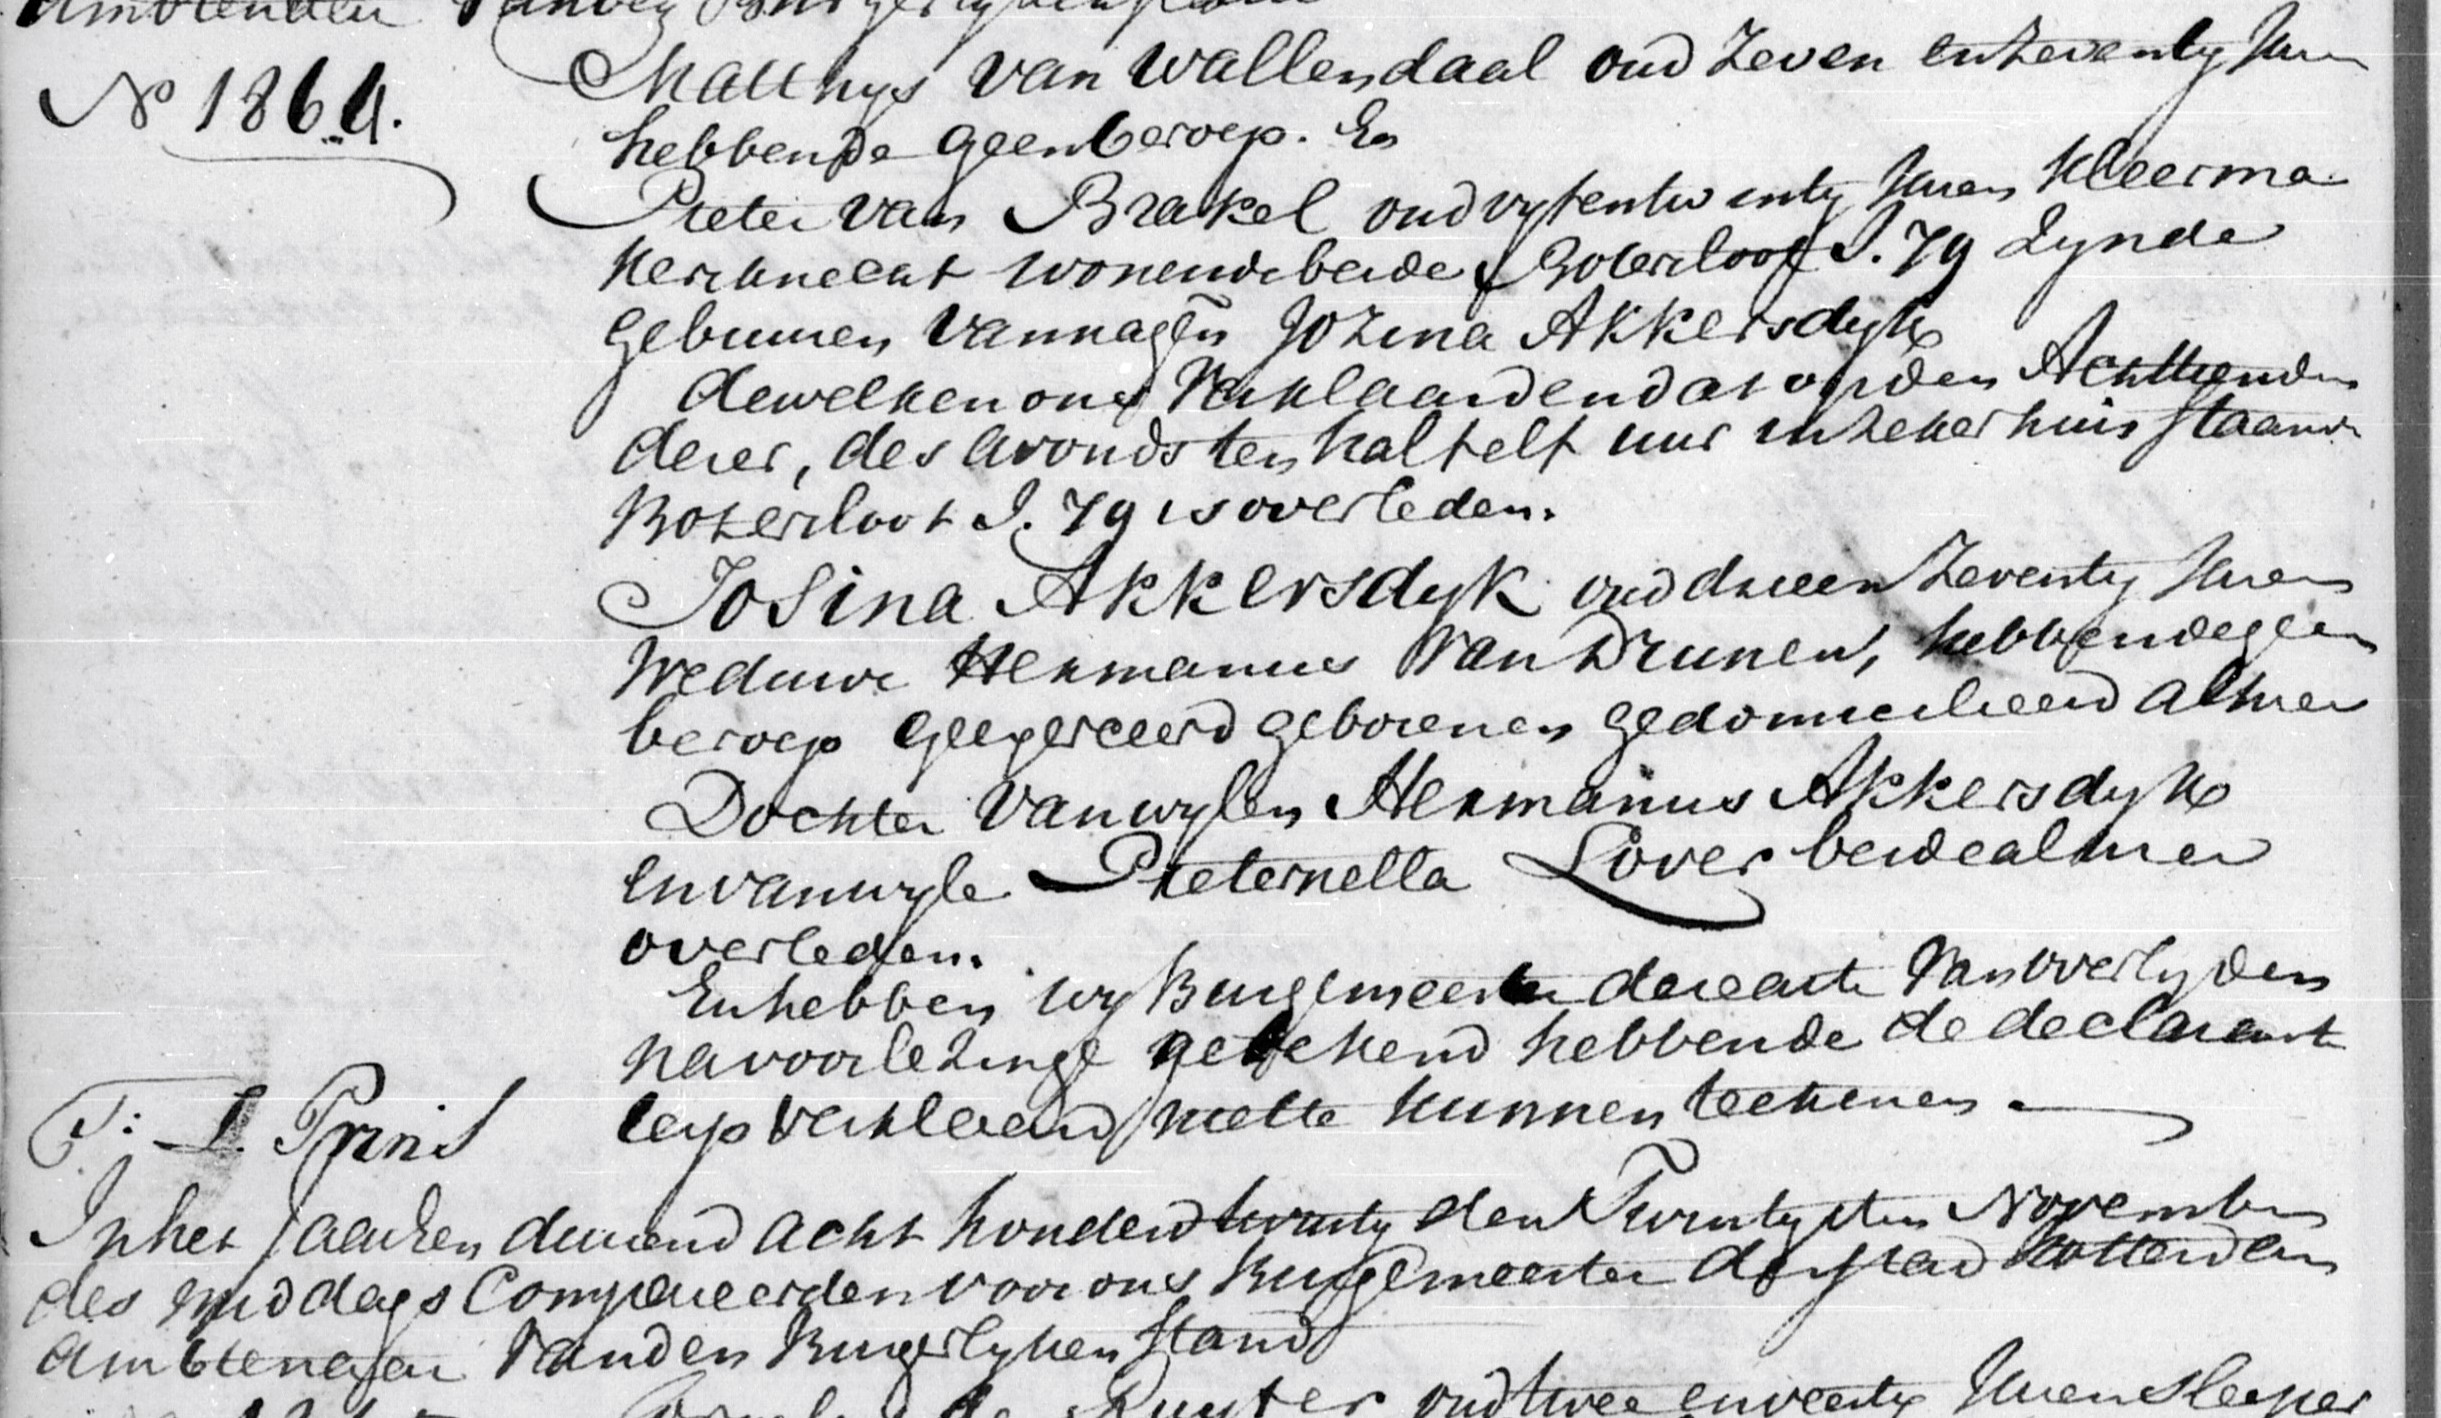 Ambtenaer van den Burgerlyken stand
N° 1864.
Matthys van Wallendaal oud Zeven en zeventig Jaren
hebbende geen beroep. En
Pieter van Brakel oud vyfentwintig Jaren Kleerma
kersknecht wonende beide Boterloot I. 79 Zynde
gebuuren van nagen Jozina Akkersdyk
dewelken ons Verklaarden dat op den Achttienden
dezer, des avonds ten half elf uur in zeker huis staande
Boterloot I. 79 is overleden.
Josina Akkersdyk oud drieen Zeventig Jaren
Weduwe Hermanus van Drunen, hebbende geen
beroep geexerceerd geboren en gedomicilieerd alhier
Dochter van wylen Hermanus Akkersdyk
en van wyle Pieternella Lover beide alhier
overleden.
En hebben wy Burgemeester deze acte van overlyden
na voorlezinge getekend hebbende de declarant
verklaard niette kunnen teekenen.
T: L. Prins
In het Jaar een duizend acht honderd twintig den Twintigsten November
des middags Compareerden voor ons Burgemeester der stad Rotterdam
Ambtenaer van den Burgerlyken stand
de Ruyter oud twee en veertig Jaren sleeper